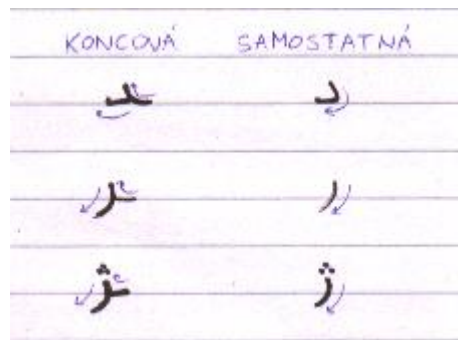 KONCOVÁ SAMOSTATNÁ
ـد د
ـر ر
ـژ ژ